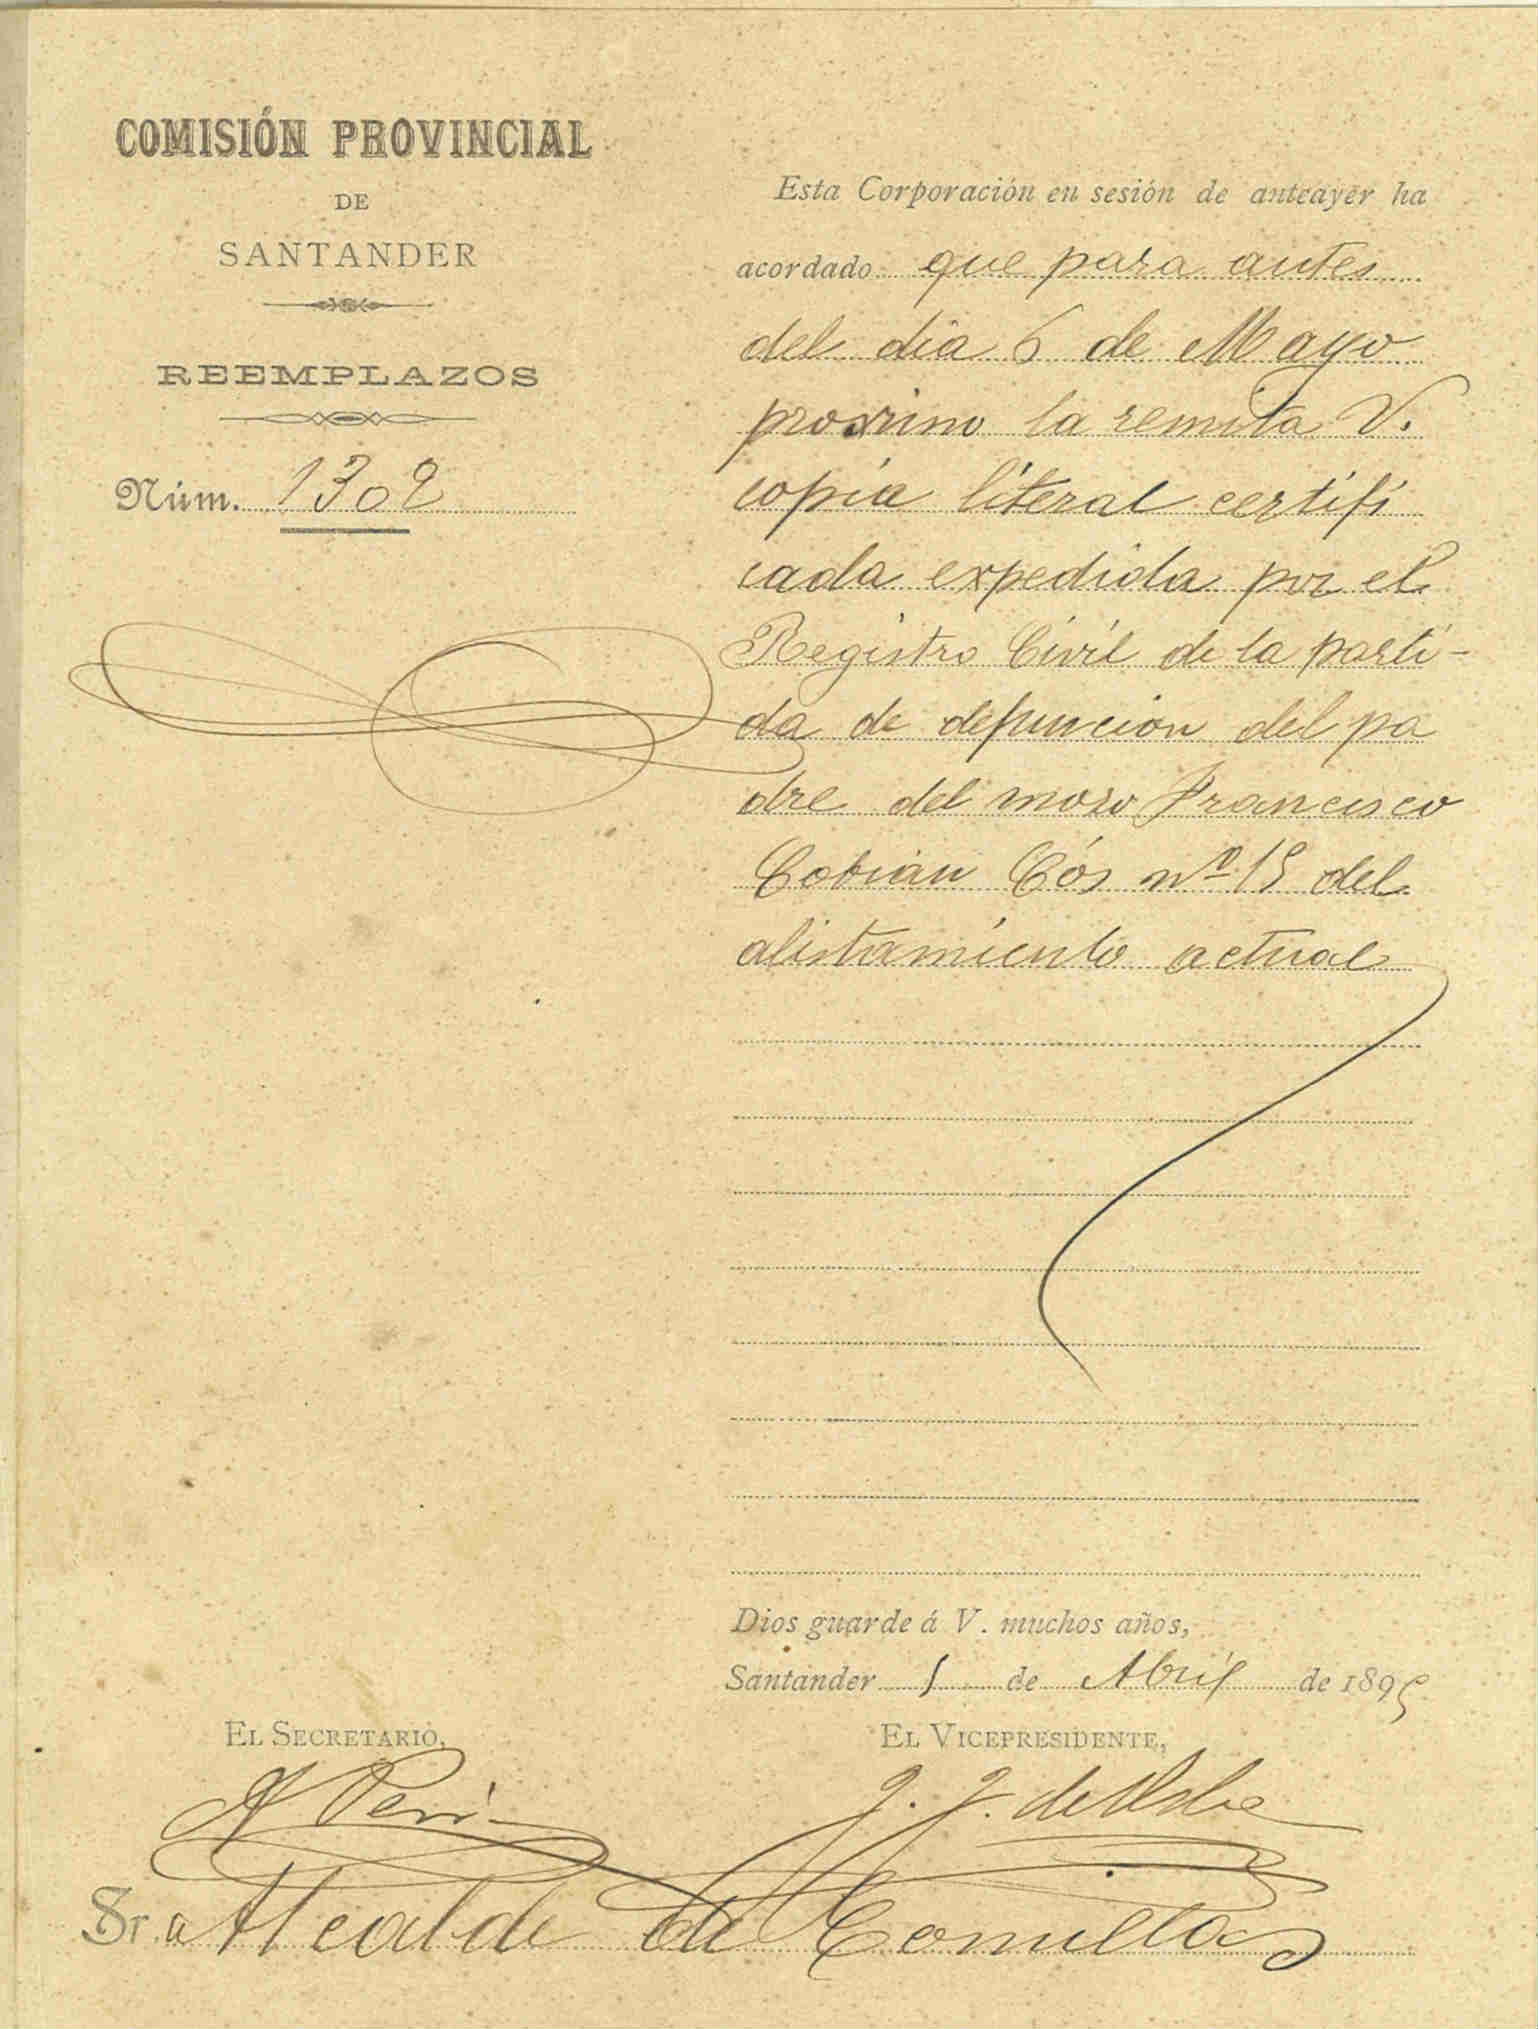 COMISIÓN PROVINCIAL
DE
SANTANDER
REEMPLAZOS
Núm. 1302
Esta Corporación en sesión de anteayer ha
acordado que para antes
del dia 6 de Mayo
proximo la remita V.
copia literal certifi
cada expedida por el
Registro Civil de la parti-
da de defuncion del pa
dre del mozo Francisco
Cobian Cós nº 15 del
alistamiento actual
Dios guarde á V. muchos años,
Santander 1 de Abril de 1895
EL SECRETARIO,
EL VICEPRESIDENTE,
Sr. Alcalde de Comillas